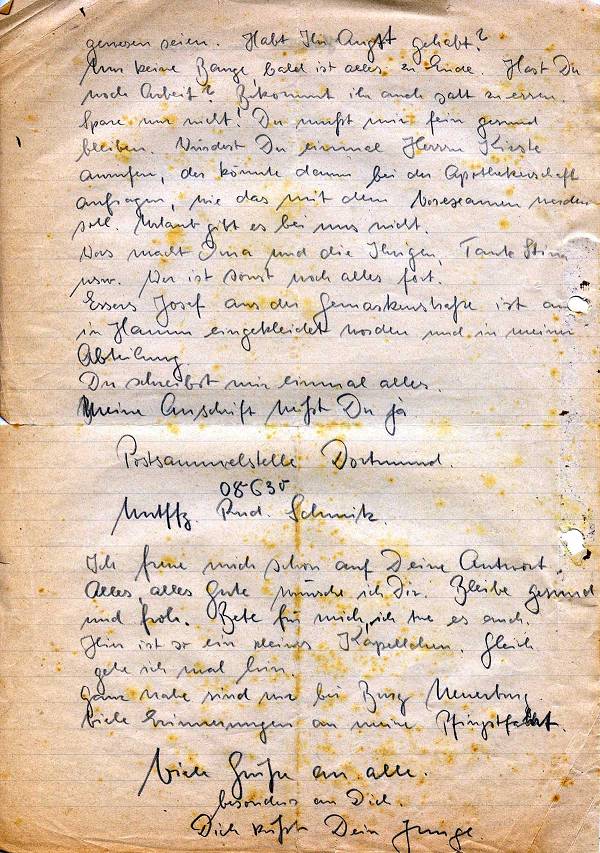 gewesen seien. Habt Ihr Angst gehabt?
Nur keine Bange, bald ist alles zu Ende. Hast Du
noch Arbeit? Bekommt ihr auch satt zu essen.
Spare nur nicht! Du mußt mir fein gesund
bleiben. Würdest Du einmal Herrn
anrufen, der könnte dann bei der Apothekerschaft
anfragen, wie das mit dem Vorexamen werden
soll. Urlaub gibt es bei uns nicht.
Was macht und die Ihrigen, Tante
usw. Wer ist sonst noch alles fort.
Essers Josef aus der ist auch
in Hamm eingekleidet worden und in meiner
Abteilung.
Du schreibst mir einmal alles.
Meine Anschrift weißt Du ja
Postsammelstelle Dortmund.
08630
Uffz. Rud. Schmitz.
Ich freue mich schon auf Deine Antwort.
Alles, alles Gute wünsche ich Dir. Bleibe gesund
und froh. Bete für mich, ich tue es auch.
Hier ist so ein kleines Kapellchen. Gleich
gehe ich mal hin.
Ganz nahe sind wir bei Burg Neuerburg
viele Erinnerungen an meine Pfingstfahrt.
Viele Grüße an alle.
besonders an Dich.
Dich küßt Dein Junge.